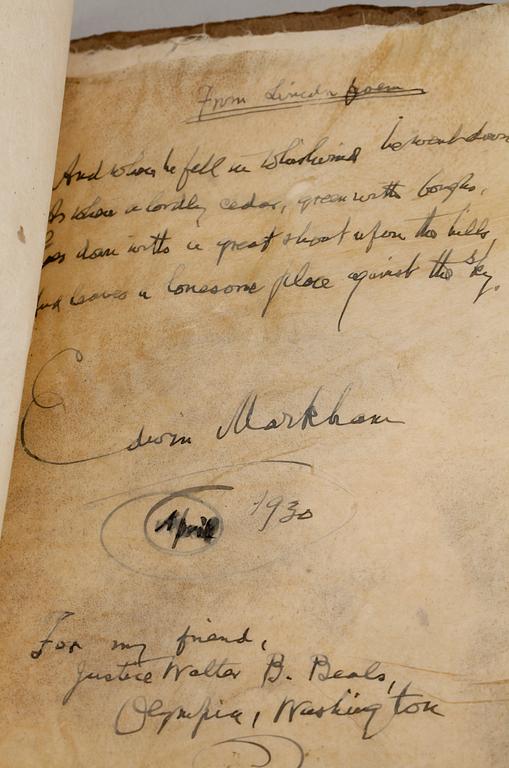 From Lincoln poem
And when he fell in whirlwind he went down
As when a lordly cedar, green with boughs,
Goes down with a great shout upon the hills
And leaves a lonesome place against the sky.
Edwin Markham
April 1930
For my friend,
Justice Walter B. Beals,
Olympia, Washington